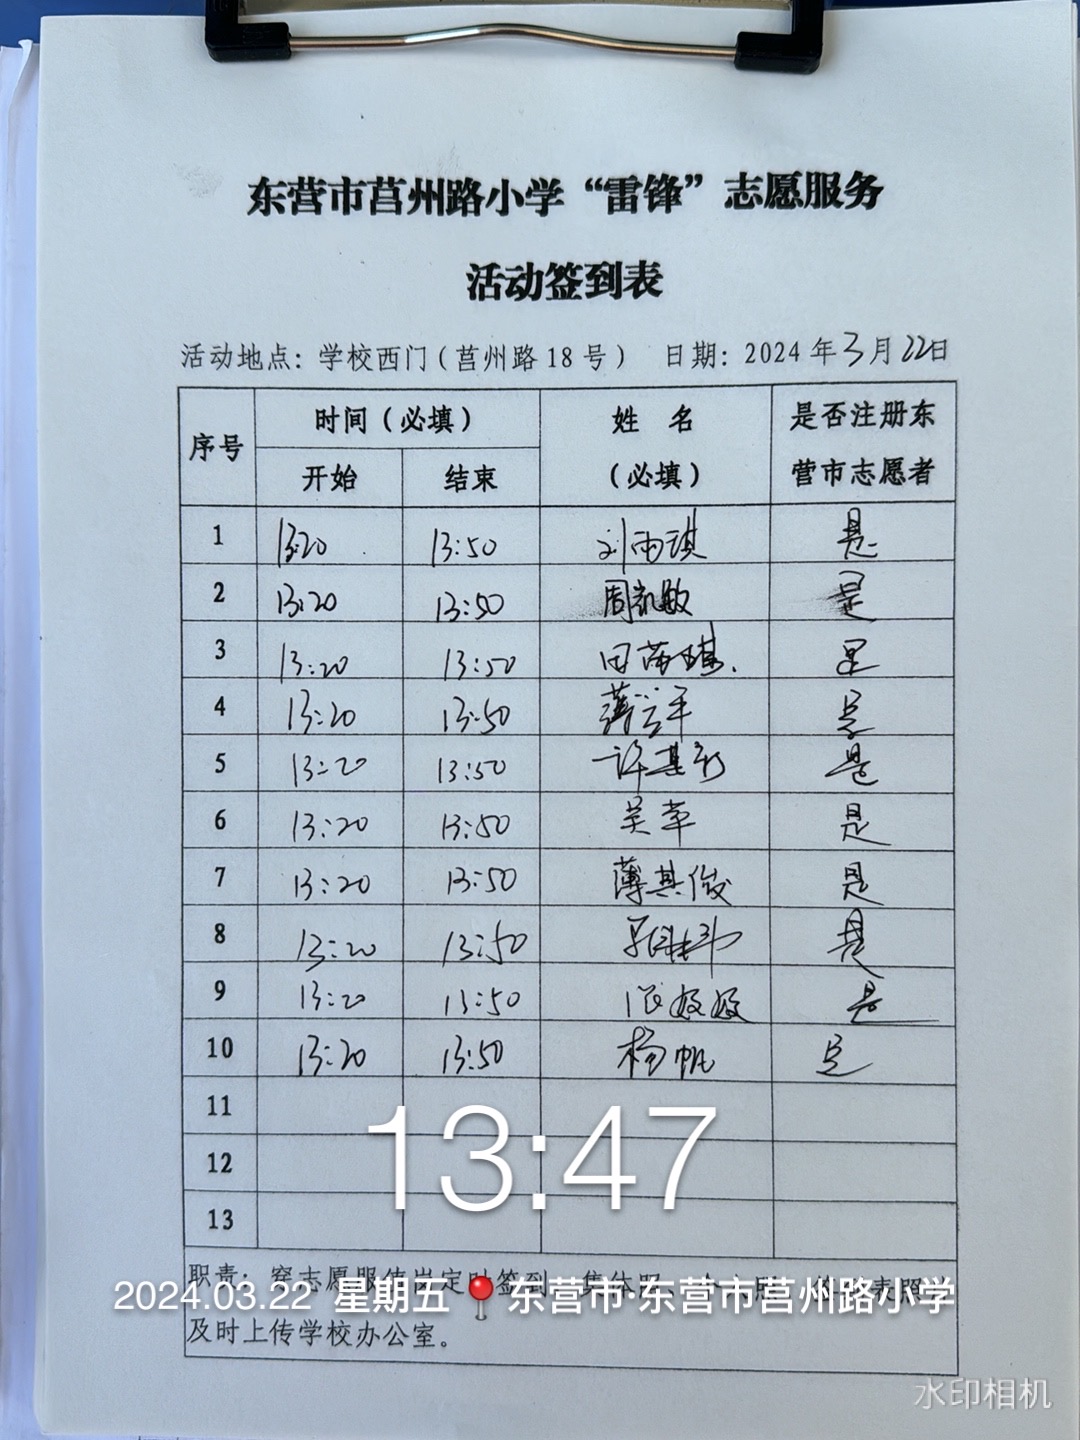 东营市莒州路小学“雷锋”志愿服务
活动签到表
活动地点：学校西门（莒州路18号） 日期：2024年3月22日
序号 时间（必填） 姓 名 （必填） 是否注册东营市志愿者
开始 结束
1 13:20 13:50 刘雨琪 是
2 13:20 13:50 周凯敏 是
3 13:20 13:50 田 是
4 13:20 13:50 是
5 13:20 13:50 许其 是
6 13:20 13:50 吴苹 是
7 13:20 13:50 薄其俊 是
8 13:20 13:50 是
9 13:20 13:50 是
10 13:20 13:50 杨帆 是
11
12
13
13:47
职责：穿志愿服
2024.03.22 星期五 东营市·东营市莒州路小学
及时上传学校办公室。
水印相机